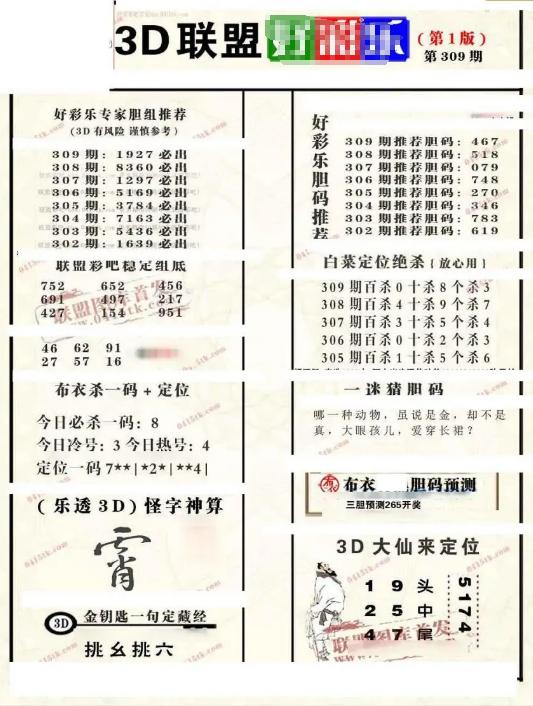 3D联盟
(第1版)
第309期
好彩乐专家胆组推荐
(3D有风险 谨慎参考)
309期:1927必出
308期:8360必出
307期:1297必出
306期:5169必出
305期:3784必出
304期:7163必出
303期:5436必出
302期:1639必出
联盟彩吧稳定组底
752 652 456
691 497 217
427 154 951
46 62 91
27 57 16
布衣杀一码+定位
今日必杀一码:8
今日冷号:3 今日热号:4
定位一码7**|*2*|**4|
(乐透3D)怪字神算
3D
金钥匙一句定藏经
挑幺挑六
好彩乐胆码推荐
309期推荐胆码:467
308期推荐胆码:518
307期推荐胆码:079
306期推荐胆码:748
305期推荐胆码:270
304期推荐胆码:346
303期推荐胆码:783
302期推荐胆码:619
白菜定位绝杀{放心用}
309期百杀0十杀8个杀3
308期百杀4十杀9个杀7
307期百杀3十杀5个杀4
306期百杀0十杀2个杀3
305期百杀1十杀5个杀6
一迷猜胆码
哪一种动物,虽说是金,却不是
真,大眼孩儿,爱穿长裙?
布衣 胆码预测
三胆预测265开奖
3D大仙来定位
1 9 头
2 5 中
4 7 尾
5174
联盟图库首发
www.0415tk.com